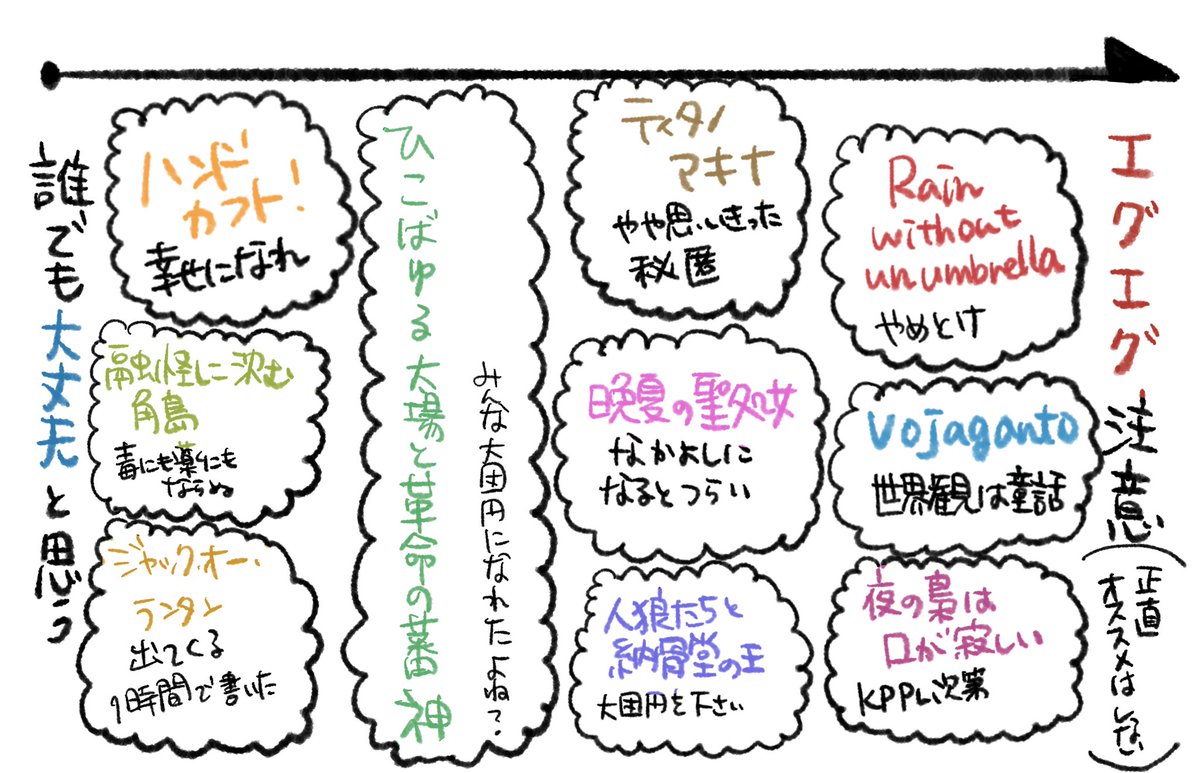 誰でも大丈夫と思う
ハンド
カフト!
幸せになれ
融怪に沈む
角島
毒にも薬にも
ならぬ
ジャック・オー・
ランタン
出てくる
1時間で書いた
ひこばゆる大場と革命の蕃神
みんな大団円になれたよね?
ティタノ
マキナ
やや思いきった
秘匿
晩夏の聖処女
なかよしに
なるとつらい
人狼たちと
納骨堂の王
大団円を下さい
Rain
without
un umbrella
やめとけ
Vojaganto
世界観は童話
夜の梟は
口が寂しい
KPPL次第
エグエグ注意
(正直
オススメはしない)